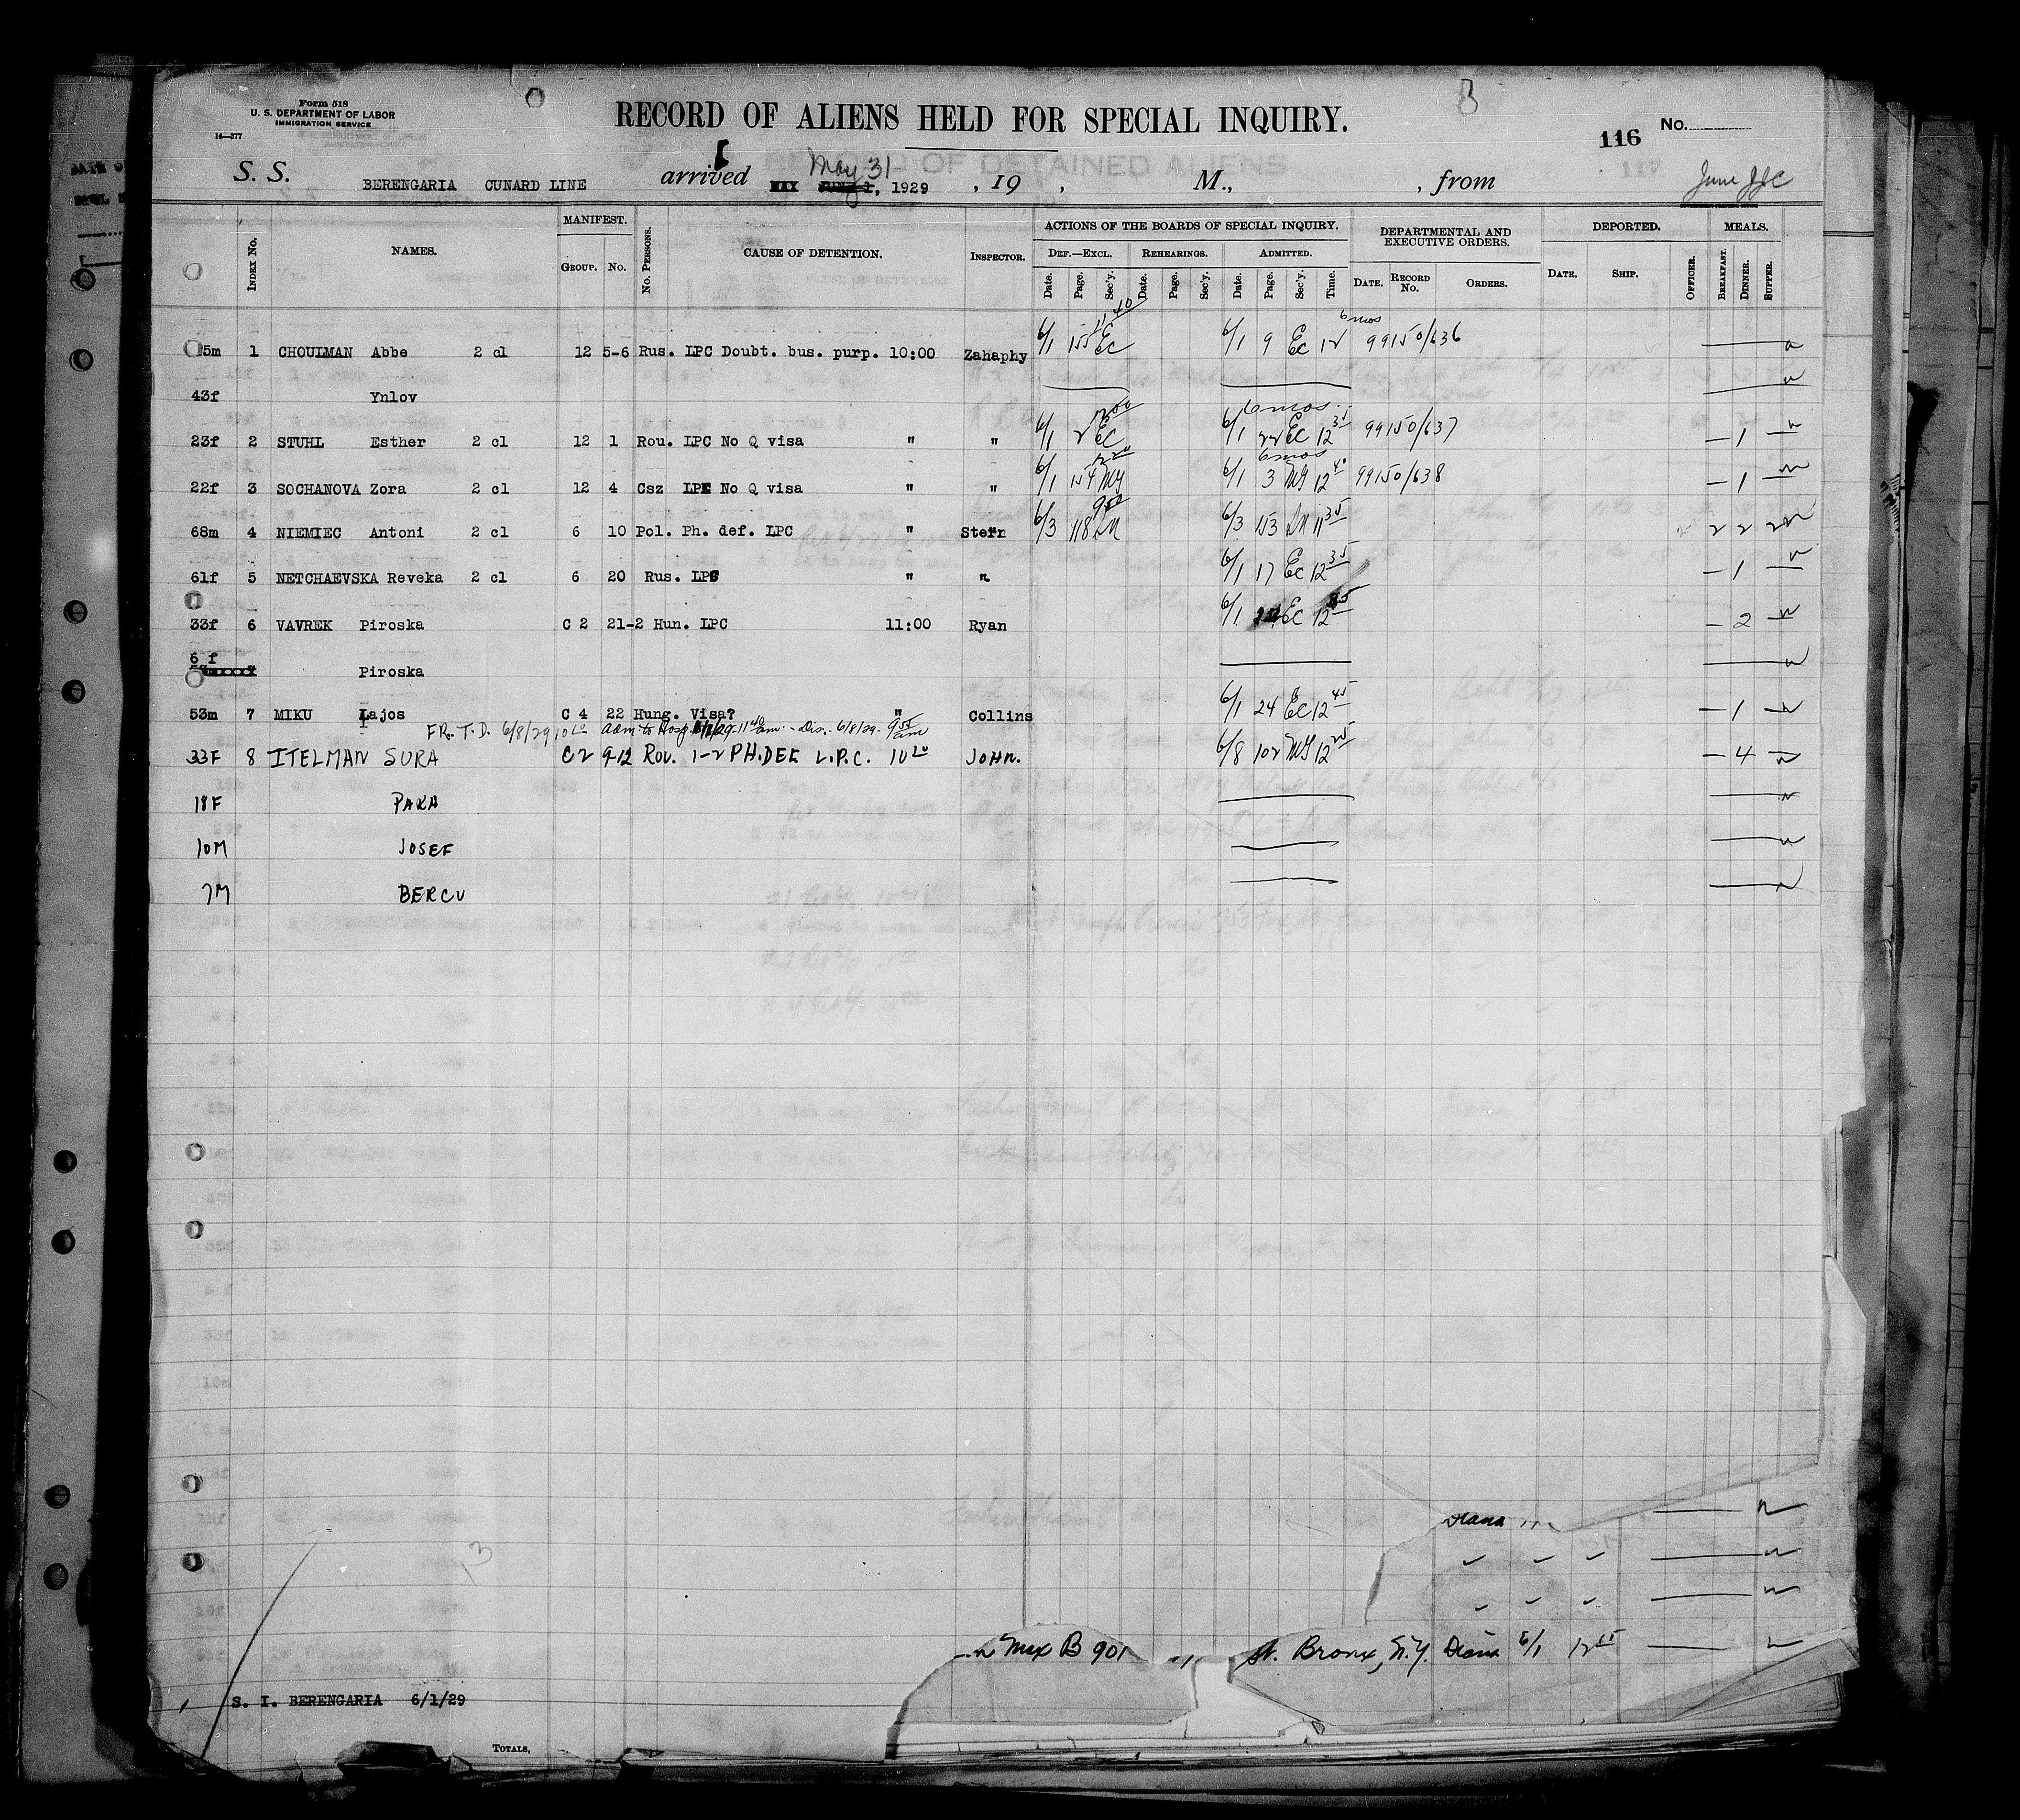 Form 518
U. S. DEPARTMENT OF LABOR
IMMIGRATION SERVICE
14—377
RECORD OF ALIENS HELD FOR SPECIAL INQUIRY.
116 No.
S. S. BERENGARIA CUNARD LINE arrived May 31 1929 , 19 , M., , from
INDEX No. NAMES. MANIFEST. GROUP. No. No. PERSONS. CAUSE OF DETENTION. INSPECTOR. ACTIONS OF THE BOARDS OF SPECIAL INQUIRY. DEPARTMENTAL AND EXECUTIVE ORDERS. DEPORTED. MEALS.
DEF.—EXCL. REHEARINGS. ADMITTED.
Date. Page. Sec'y. Date. Page. Sec'y. Date. Page. Sec'y. Time. DATE. RECORD No. ORDERS. DATE. SHIP. OFFICER. BREAKFAST. DINNER. SUPPER.
11 40 6 mos
5m 1 CHOUIMAN Abbe 2 cl 12 5-6 Rus. LPC Doubt. bus. purp. 10:00 Zahaphy 6/1 155 EC 6/1 9 EC 12 99150/636
43f Ynlov
12 00 6 mos.
23f 2 STUHL Esther 2 cl 12 1 Rou. LPC No Q visa " " 6/1 2 EC 6/1 22 EC 12 35 99150/637 — 1 —
12 20 6 mos
22f 3 SOCHANOVA Zora 2 cl 12 4 Csz LPC No Q visa " " 6/1 154 MG 6/1 3 MG 12 40 99150/638 — 1 —
9 50
68m 4 NIEMIEC Antoni 2 cl 6 10 Pol. Ph. def. LPC " Stern 6/3 118 6/3 153 11 35 2 2 2
61f 5 NETCHAEVSKA Reveka 2 cl 6 20 Rus. LPC " " 6/1 17 EC 12 35 — 1 —
33f 6 VAVREK Piroska C 2 21-2 Hun. LPC 11:00 Ryan 6/1 EC 12 — 2 —
6 f Piroska
53m 7 MIKU Lajos C 4 22 Hung. Visa? " Collins 6/1 24 EC 12 45 — 1 —
FR. T. D. 6/8/29 Adm. to Hosp. 11 40 am - Dis. 6/8/29 - 9 55 am
33F 8 ITELMAN SURA C2 9-12 ROU. 1-2 PH.DEF. L.P.C. 10 20 JOHN. 6/8 102 MG 12 25 — 4 —
18F
10M JOSEF
7M BERCU
Diana
Max B 901 St. Bronx, N.Y. Diana 6/1
S. I. BERENGARIA 6/1/29
TOTALS,